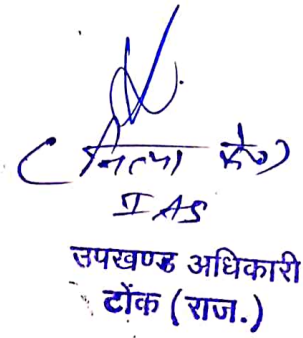 (नित्या के०)
IAS
उपखण्ड अधिकारी
टोंक (राज.)